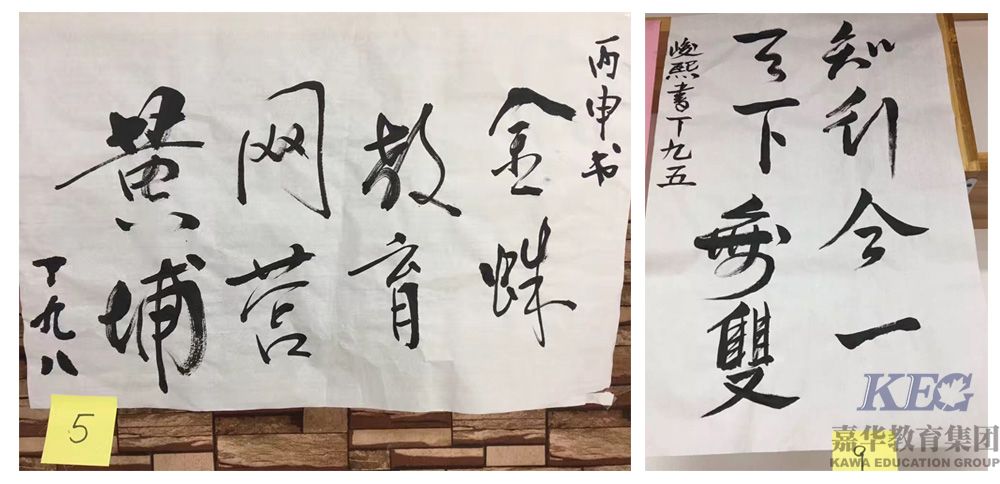 丙申书
金蛛
教育
网营
黄埔
丁九八
5
知行合一
天下無雙
峻熙書丁九五
9
KEG
嘉华教育集团
KAWA EDUCATION GROUP